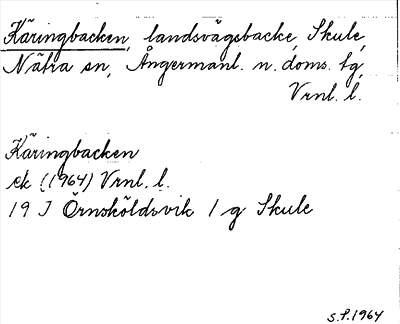 Käringbacken, landsvägsbacke, Skule,
Nätra sn, Ångermanl. n. doms. tg,
Vrnl. l.
Käringbacken
ek (1964) Vrnl. l.
19 J Örnsköldsvik 1 g Skule
S.P. 1964